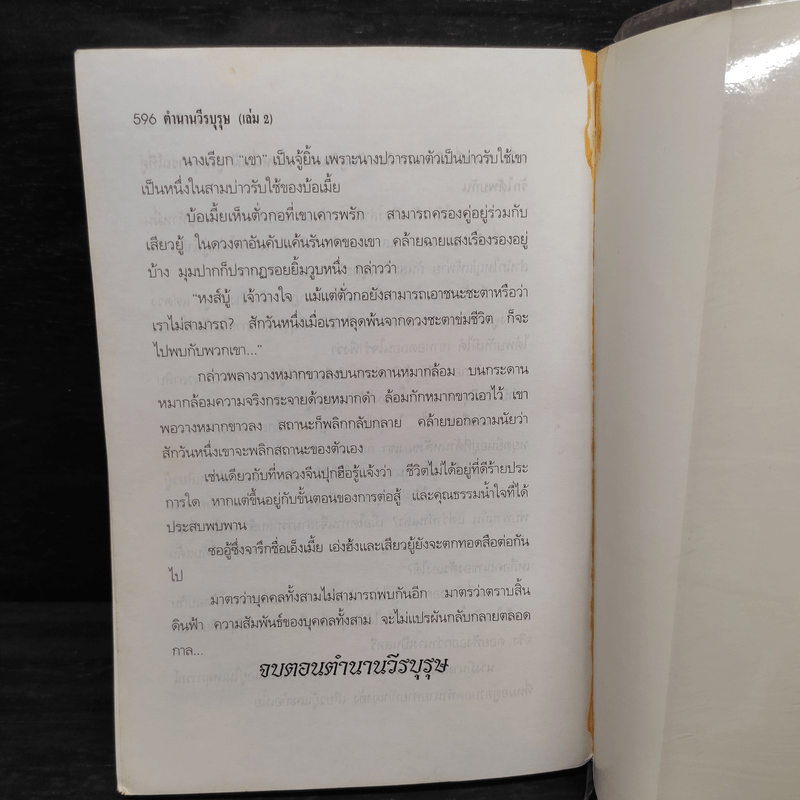 596 ตำนานวีรบุรุษ (เล่ม 2)
นางเรียก "เขา" เป็นจู้ยิ้น เพราะนางปวารณาตัวเป็นบ่าวรับใช้เขา
เป็นหนึ่งในสามบ่าวรับใช้ของบ้อเมี้ย
บ้อเมี้ยเห็นตั่วกอที่เขาเคารพรัก สามารถครองคู่อยู่ร่วมกับ
เสียวยู้ ในดวงตาอันคับแค้นรันทดของเขา คล้ายฉายแสงเรืองรองอยู่
บ้าง มุมปากก็ปรากฏรอยยิ้มวูบหนึ่ง กล่าวว่า
"หงส์บู้ เจ้าวางใจ แม้แต่ตั่วกอยังสามารถเอาชนะชะตาหรือว่า
เราไม่สามารถ? สักวันหนึ่งเมื่อเราหลุดพ้นจากดวงชะตาข่มชีวิต ก็จะ
ไปพบกับพวกเขา..."
กล่าวพลางวางหมากขาวลงบนกระดานหมากล้อม บนกระดาน
หมากล้อมความจริงกระจายด้วยหมากดำ ล้อมกักหมากขาวเอาไว้ เขา
พอวางหมากขาวลง สถานะก็พลิกกลับกลาย คล้ายบอกความนัยว่า
สักวันหนึ่งเขาจะพลิกสถานะของตัวเอง
เช่นเดียวกับที่หลวงจีนปุกฮือรู้แจ้งว่า ชีวิตไม่ได้อยู่ที่ดีร้ายประ
การใด หากแต่ขึ้นอยู่กับขั้นตอนของการต่อสู้ และคุณธรรมน้ำใจที่ได้
ประสบพบพาน
ซออู้ซึ่งจารึกชื่อเอ็งเมี้ย เอ่งฮ้งและเสียวยู้ยังจะตกทอดสือต่อกัน
ไป
มาตรว่าบุคคลทั้งสามไม่สามารถพบกันอีก มาตรว่าตราบสิ้น
ดินฟ้า ความสัมพันธ์ของบุคคลทั้งสาม จะไม่แปรผันกลับกลายตลอด
กาล...
จบตอนตำนานวีรบุรุษ